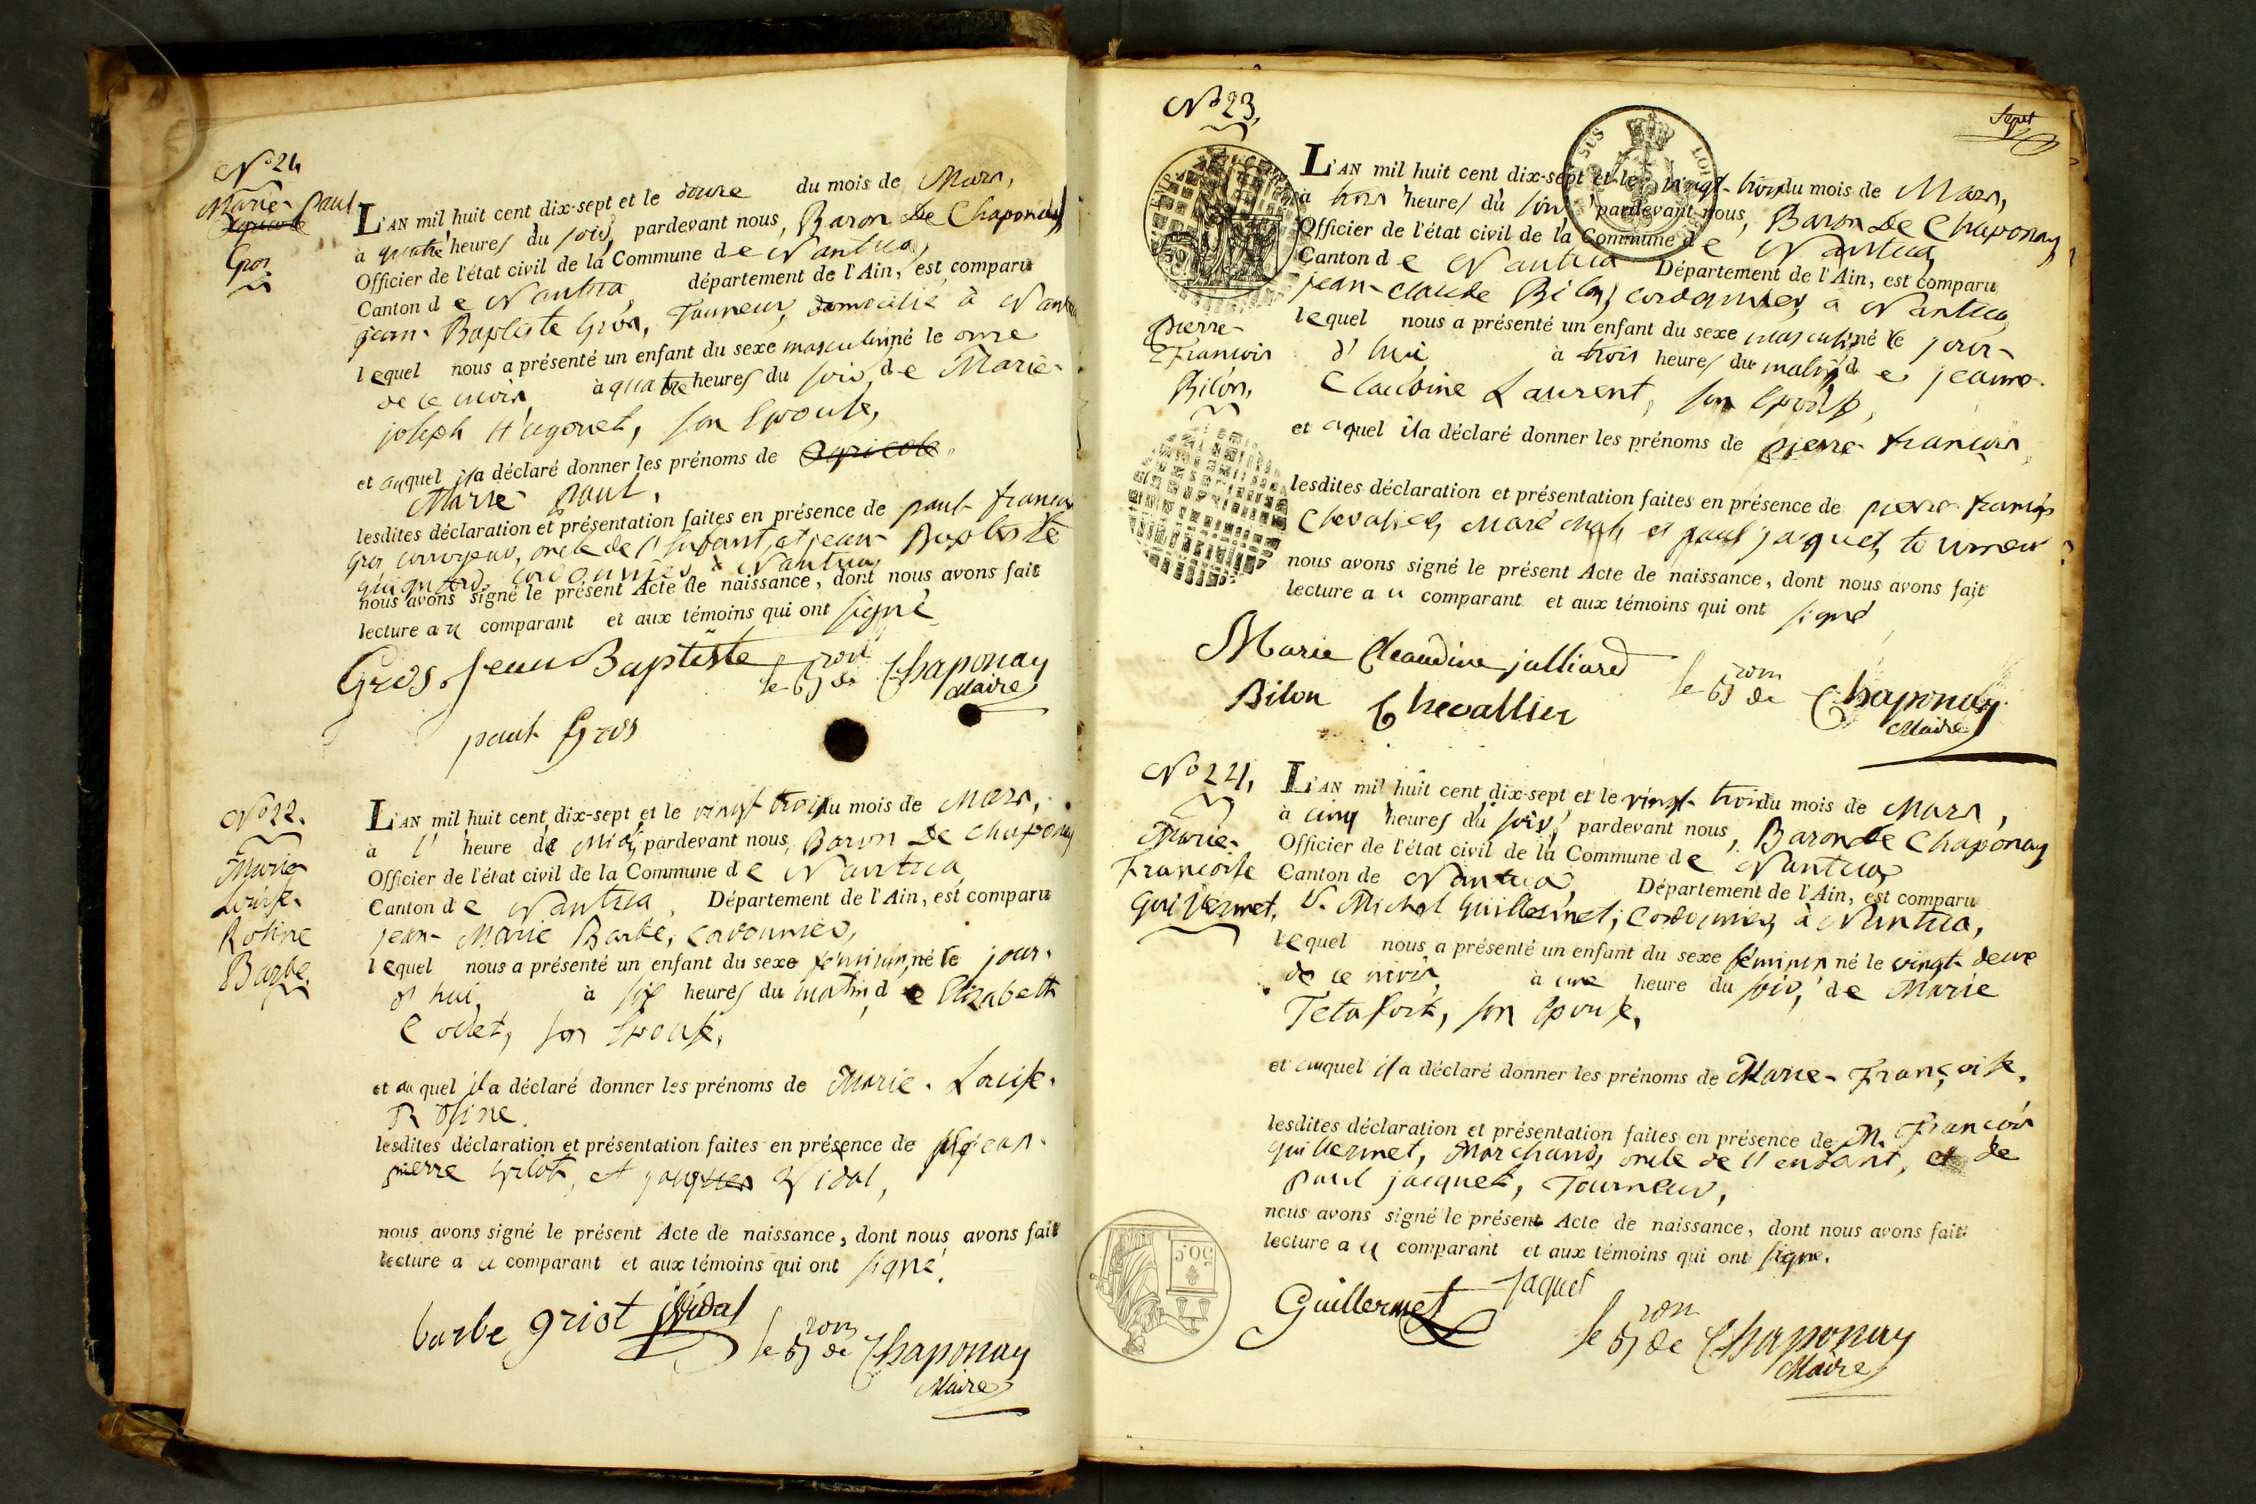 Marie-Paul
Agricole
Gros
L'AN mil huit cent dix-sept et le douze du mois de Mars,
à quatre heures du soir, pardevant nous, Baron De Chaponay
Officier de l'état civil de la Commune de Nantua,
Canton de Nantua, département de l'Ain, est comparu
jean-Baptiste Gros, Tanneur, domicilié à Nantua
lequel nous a présenté un enfant du sexe masculin, né le onze
de ce mois à quatre heures du soir, de Marie-
joseph Hugonet, son Epouse,
et auquel il a déclaré donner les prénoms de Agricole,
Marie-Paul,
lesdites déclaration et présentation faites en présence de paul-françois
Gros corroyeur, oncle de l'Enfant, et jean-Baptiste
cordonnier à Nantua,
nous avons signé le présent Acte de naissance, dont nous avons fait
lecture au comparant et aux témoins qui ont signé
Gros Jean Baptiste le Bon de Chaponay
Maire
paul Gros
No 22.
Marie
Louise
Rosine
Barbe.
L'AN mil huit cent dix-sept et le vingt trois du mois de Mars,
à l' heure de Midi, pardevant nous, Baron De Chaponay
Officier de l'état civil de la Commune de Nantua
Canton de Nantua, Département de l'Ain, est comparu
jean-Marie Barbe, cordonnier,
lequel nous a présenté un enfant du sexe féminin, né le jour-
d'hui, à six heures du matin, de Elizabeth
Godet, son Epouse,
et auquel il a déclaré donner les prénoms de Marie-Louise-
Rosine.
lesdites déclaration et présentation faites en présence de jean-
pierre Griot, et jacques Vidal,
nous avons signé le présent Acte de naissance, dont nous avons fait
lecture au comparant et aux témoins qui ont signé.
barbe griot jVidal le Bon de Chaponay
Maire
No 23,
Pierre-
François
Bilon,
L'AN mil huit cent dix-sept et le vingt-trois du mois de Mars,
à trois heures du soir, pardevant nous, Baron De Chaponay
Officier de l'état civil de la Commune de Nantua,
Canton de Nantua Département de l'Ain, est comparu
jean-claude Bilon, cordonnier, à Nantua,
lequel nous a présenté un enfant du sexe masculin, né le jour-
d'hui à trois heures du matin, de jeanne-
Claudine Laurent, son Epouse,
et auquel il a déclaré donner les prénoms de pierre-françois,
lesdites déclaration et présentation faites en présence de pierre-françois
Chevalier, Maréchal, et paul jacquet, tourneur
nous avons signé le présent Acte de naissance, dont nous avons fait
lecture au comparant et aux témoins qui ont signé
Marie Cleaudine julliard
Bilon Chevallier le Bon de Chaponay
Maire
No 24,
Marie-
Françoise
Guillermet,
L'AN mil huit cent dix-sept et le vingt-trois du mois de Mars,
à cinq heures du soir, pardevant nous, Baron De Chaponay
Officier de l'état civil de la Commune de Nantua
Canton de Nantua, Département de l'Ain, est comparu
Michel Guillermet, Cordonnier, à Nantua,
lequel nous a présenté un enfant du sexe féminin né le vingt-deux
de ce mois, à une heure du soir, de Marie
Tetafort, son Epouse,
et auquel il a déclaré donner les prénoms de Marie-Françoise,
lesdites déclaration et présentation faites en présence de M. François
Guillermet, Marchand, oncle de l'enfant, et de
paul jacquet, Tourneur,
nous avons signé le présent Acte de naissance, dont nous avons fait
lecture au comparant et aux témoins qui ont signé.
Guillermet Jaquet
le Bon de Chaponay
Maire